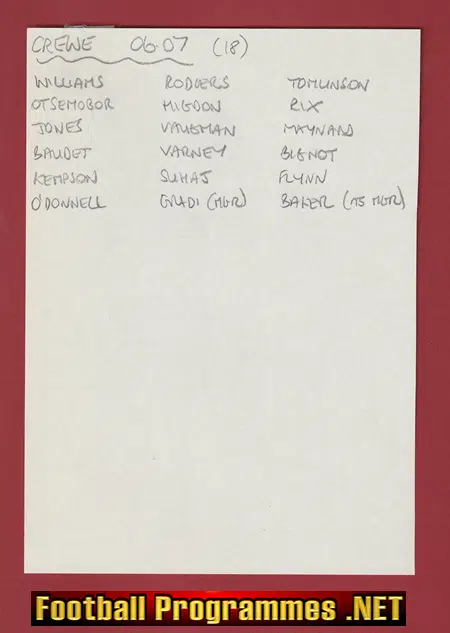 CREWE 06-07 (18)
WILLIAMS RODGERS TOMLINSON
OTSEMOBOR HIGDON RIX
JONES VAUGHAN MAYNARD
BAUDET VARNEY BIGNOT
KEMPSON SUHAJ FLYNN
O'DONNELL GRADI (MGR) BAKER (ITS MGR)
Football Programmes .NET